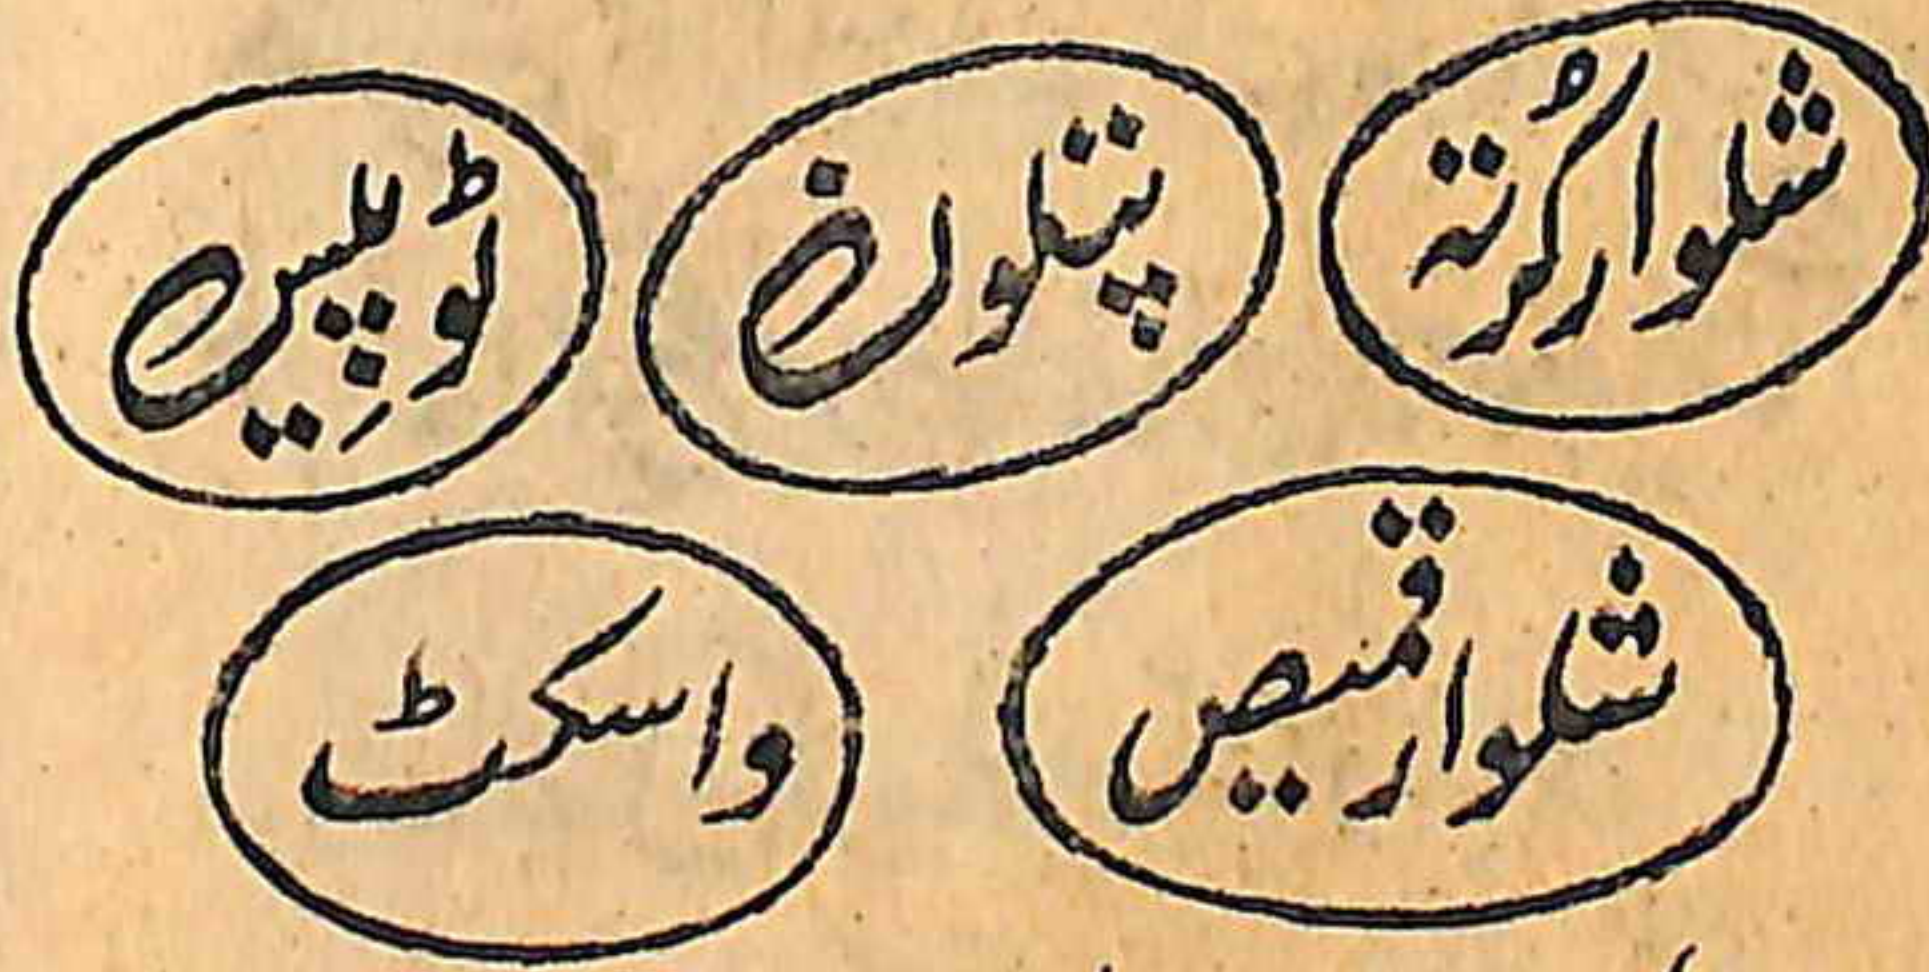 شلوار کُرتہ
پتلون
ٹو پِیس
شلوار قمیص
واسکٹ